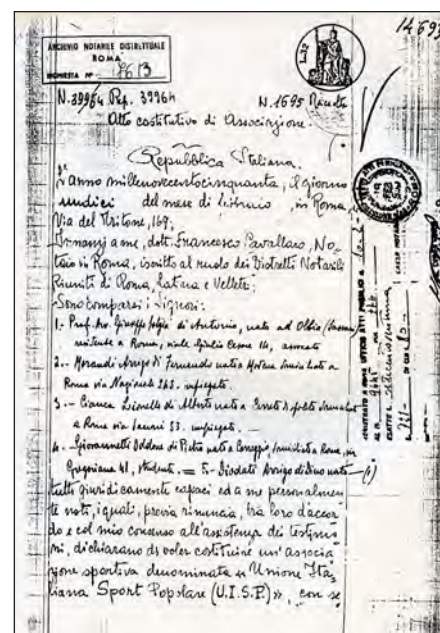 14693
ARCHIVIO NOTARILE DISTRETTUALE
ROMA
RICHIESTA N° 7613
L. 32
N. 39964 Rep. 39964 N. 1695 Raccolta
Atto costitutivo di Associazione.
Repubblica Italiana.
L'Anno millenovecentocinquanta, il giorno
undici del mese di febbraio, in Roma,
Via del Tritone, 169;
Innanzi a me, dott. Francesco Cavallaro, No-
taio in Roma, iscritto al ruolo dei Distretti Notarili
Riuniti di Roma, Latina e Velletri;
Sono comparsi i signori:
1.- Prof. Avv. Giuseppe di Antonio, nato ad Olbia (Sassari
residente a Roma, viale Giulio Cesare 14, avvocato
2.- Morandi Arrigo di Fernando nato a Modena domiciliato a
Roma via Nazionale 243. impiegato.
3.- Cianca Lionello di Alberto nato a Cerreto Spoleto domiciliato
a Roma via 53. impiegato.
4.- Giovannetti Oddone di Pietro nato a Correggio domiciliato a Roma, via
Gregoriana 41, studente. = 5.- Diodati Arrigo di Dino nato
tutti giuridicamente capaci ed a me personalmen
te noti, i quali, previa rinuncia, tra loro d'accor
do e col mio consenso all'assistenza dei testimo
ni, dichiarano di voler costituire un'associa
zione sportiva denominata « Unione Ita
liana Sport Popolare (U.I.S.P.)», con se
REGISTRATO A ROMA UFFICIO ATTI PUBBLICI